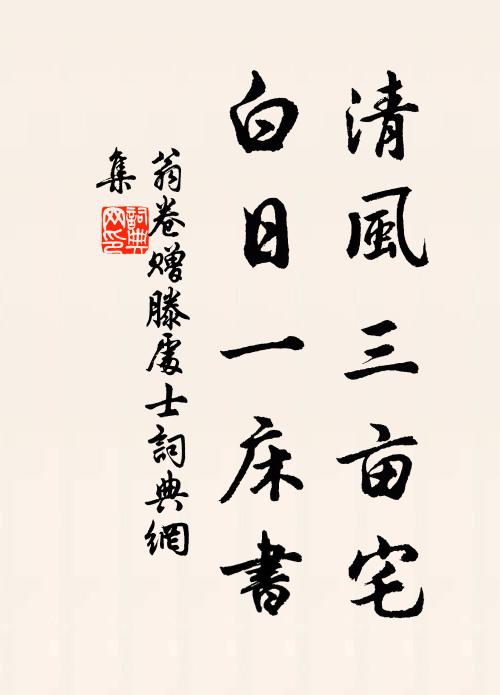 清風三亩宅
白日一床書
翁卷贈滕處士詞典網
集
詞典
网印